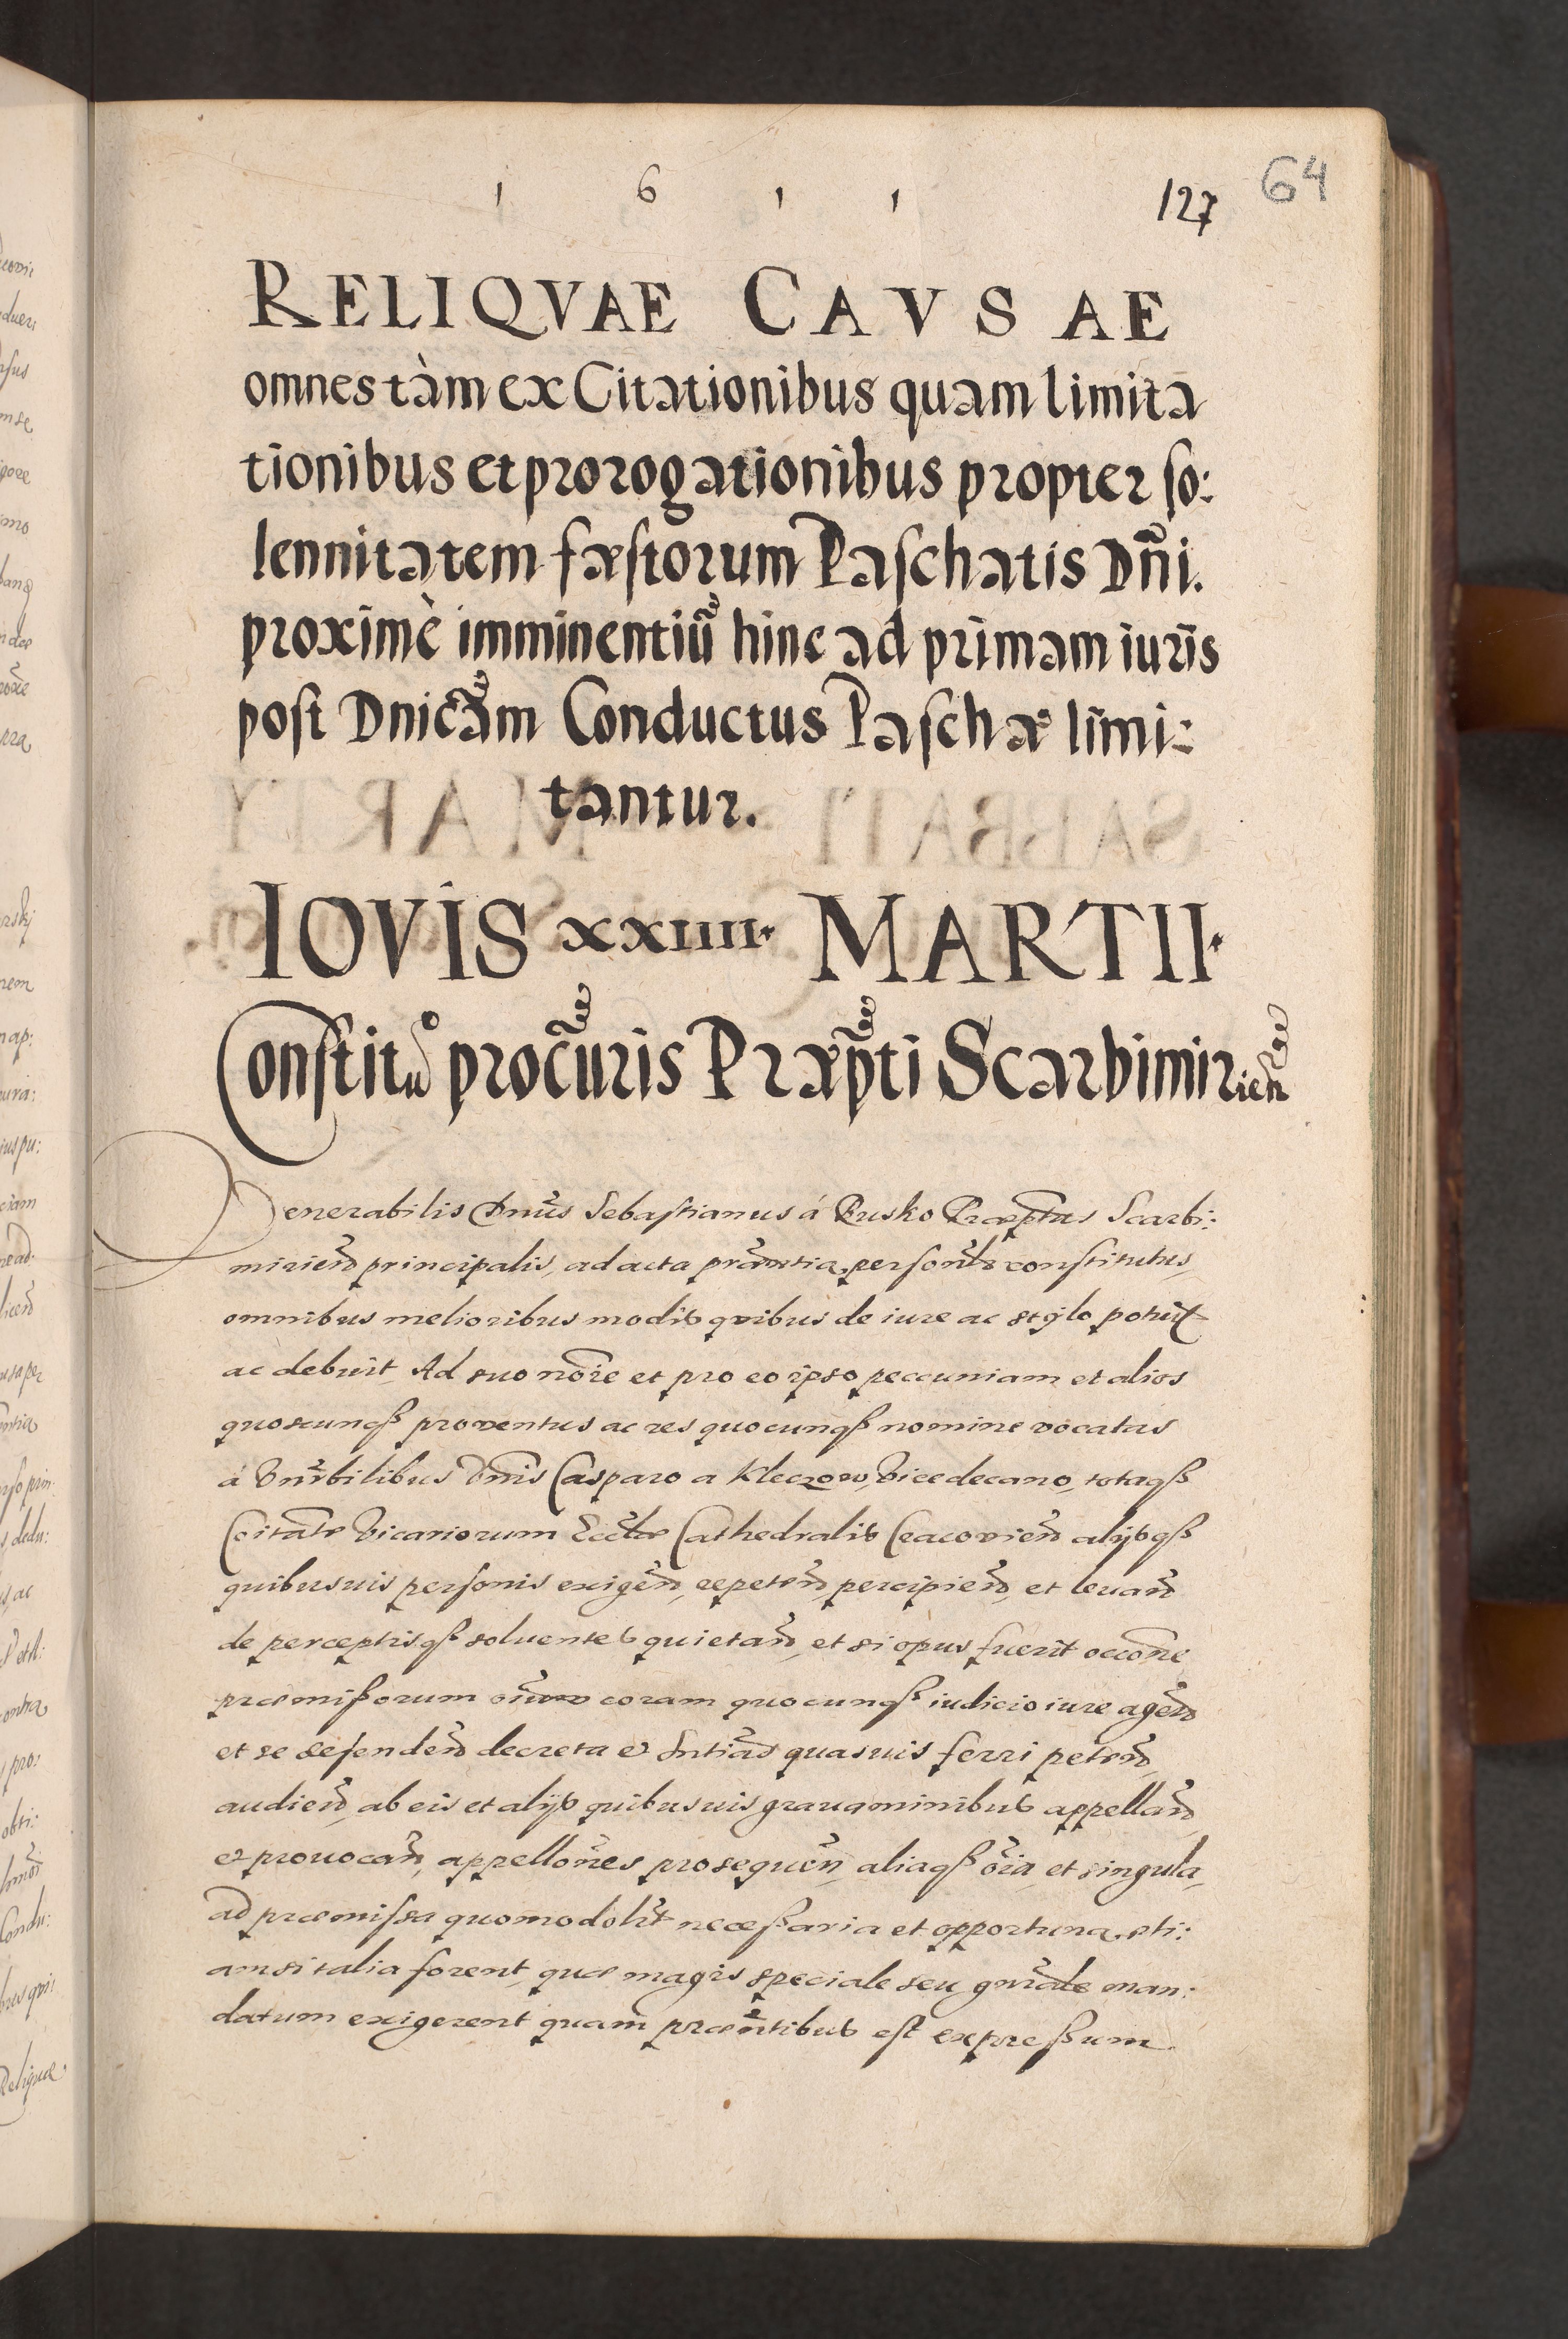 1 6 1 1
127 64
RELIQVAE CAVSAE
omnes tàm ex Citationibus quam limita
tionibus et prorogationibus propter so:
lennitatem fæstorum Paschatis Dñi.
proximè imminentiũ hinc ad primam iuris
post Dnicãm Conductus Paschæ limi:
tantur.
IOVIS xxiiii. MARTII.
Constitio procũris Præpti Scarbimirien
Venerabilis Dnus Sebastianus á Rusko Præptus Scarbi:
mirien principalis, ad acta prãntia personlr constitutus,
omnibus melioribus modis quibus de iure ac stylo potuit
ac debuit, Ad suo noĩe et pro eo ipso peccuniam et alios
quoscunq proventus ac res quocunq nomine vocatas
á Vnrbilibus Dnis Casparo a Kleczow, Vicedecano, totaq
Coitate Vicariorum Eccliæ Cathedralis Cracovien alijsq
quibusuis personis exigen, repeten, percipien, et leuan
de perceptisq soluentes quietan, et si opus fuerit occone
præmissorum oium coram quocunq iudicio iure agen
et se defenden decreta et sntias quasuis ferri peten,
audien, ab eis et alijs quibusuis grauaminibus appellan,
et prouocan, appellones prosequen, aliaq oia, et singula,
ad præmissa quomodolt necessaria et opportuna, eti:
am si talia forent, quæ magis speciale seu gnrale man:
datum exigerent quam præntibus est expressum.